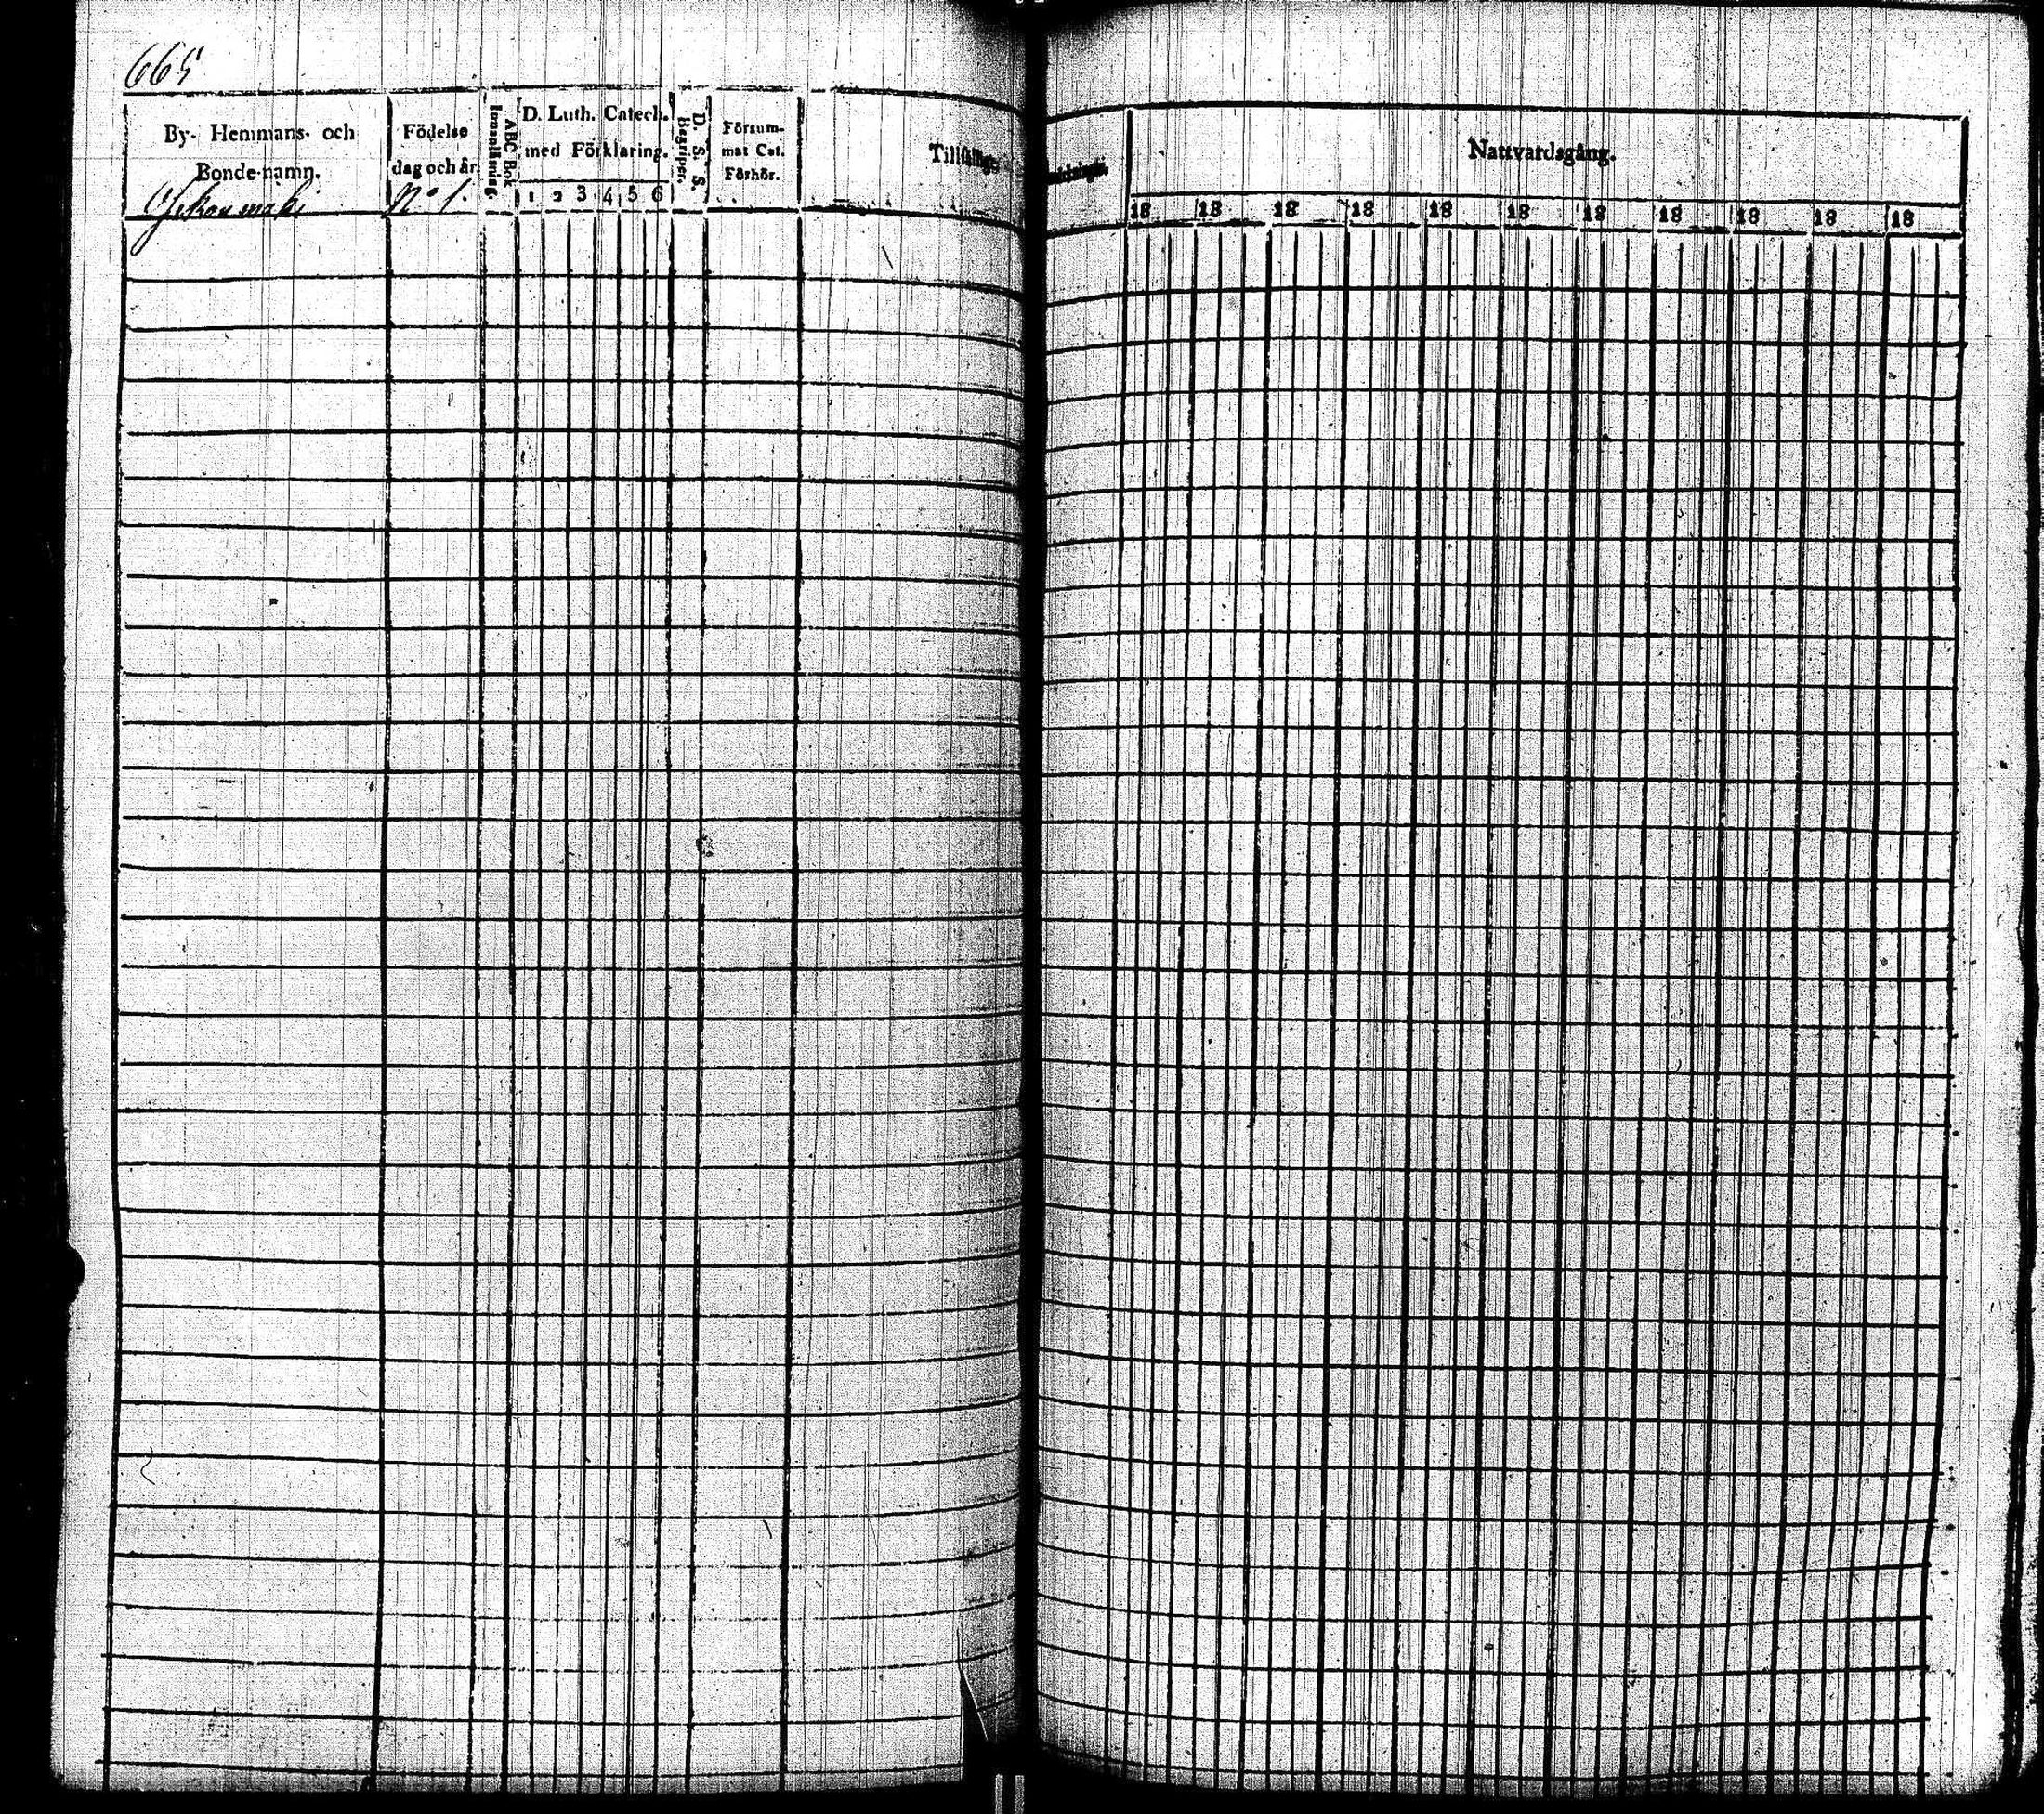 665
By- Hemmans- och
Bonde-namn.
Födelse
dag och år.
ABC Bok
Innanläsning.
D. Luth. Catech.
med Förklaring.
1 2 3 4 5 6
D. S. S.
Begriper.
Försum-
mat Cat.
Förhör.
N:o 1.
Nattvardsgång.
18 18 18 18 18 18 18 18 18 18 18